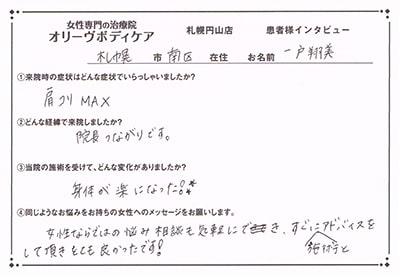 女性専門の治療院
オリーヴボディケア 札幌円山店 患者様インタビュー
札幌 市 南区 在住 お名前 一戸翔美
①来院時の症状はどんな症状でいらっしゃいましたか?
肩コリ MAX
②どんな経緯で来院しましたか?
院長つながりです。
③当院の施術を受けて、どんな変化がありましたか?
身体が楽になった!
④同じようなお悩みをお持ちの女性へのメッセージをお願いします。
女性ならではの悩み相談も気軽にでき、すぐにアドバイスを
施術と
して頂きとても良かったです!